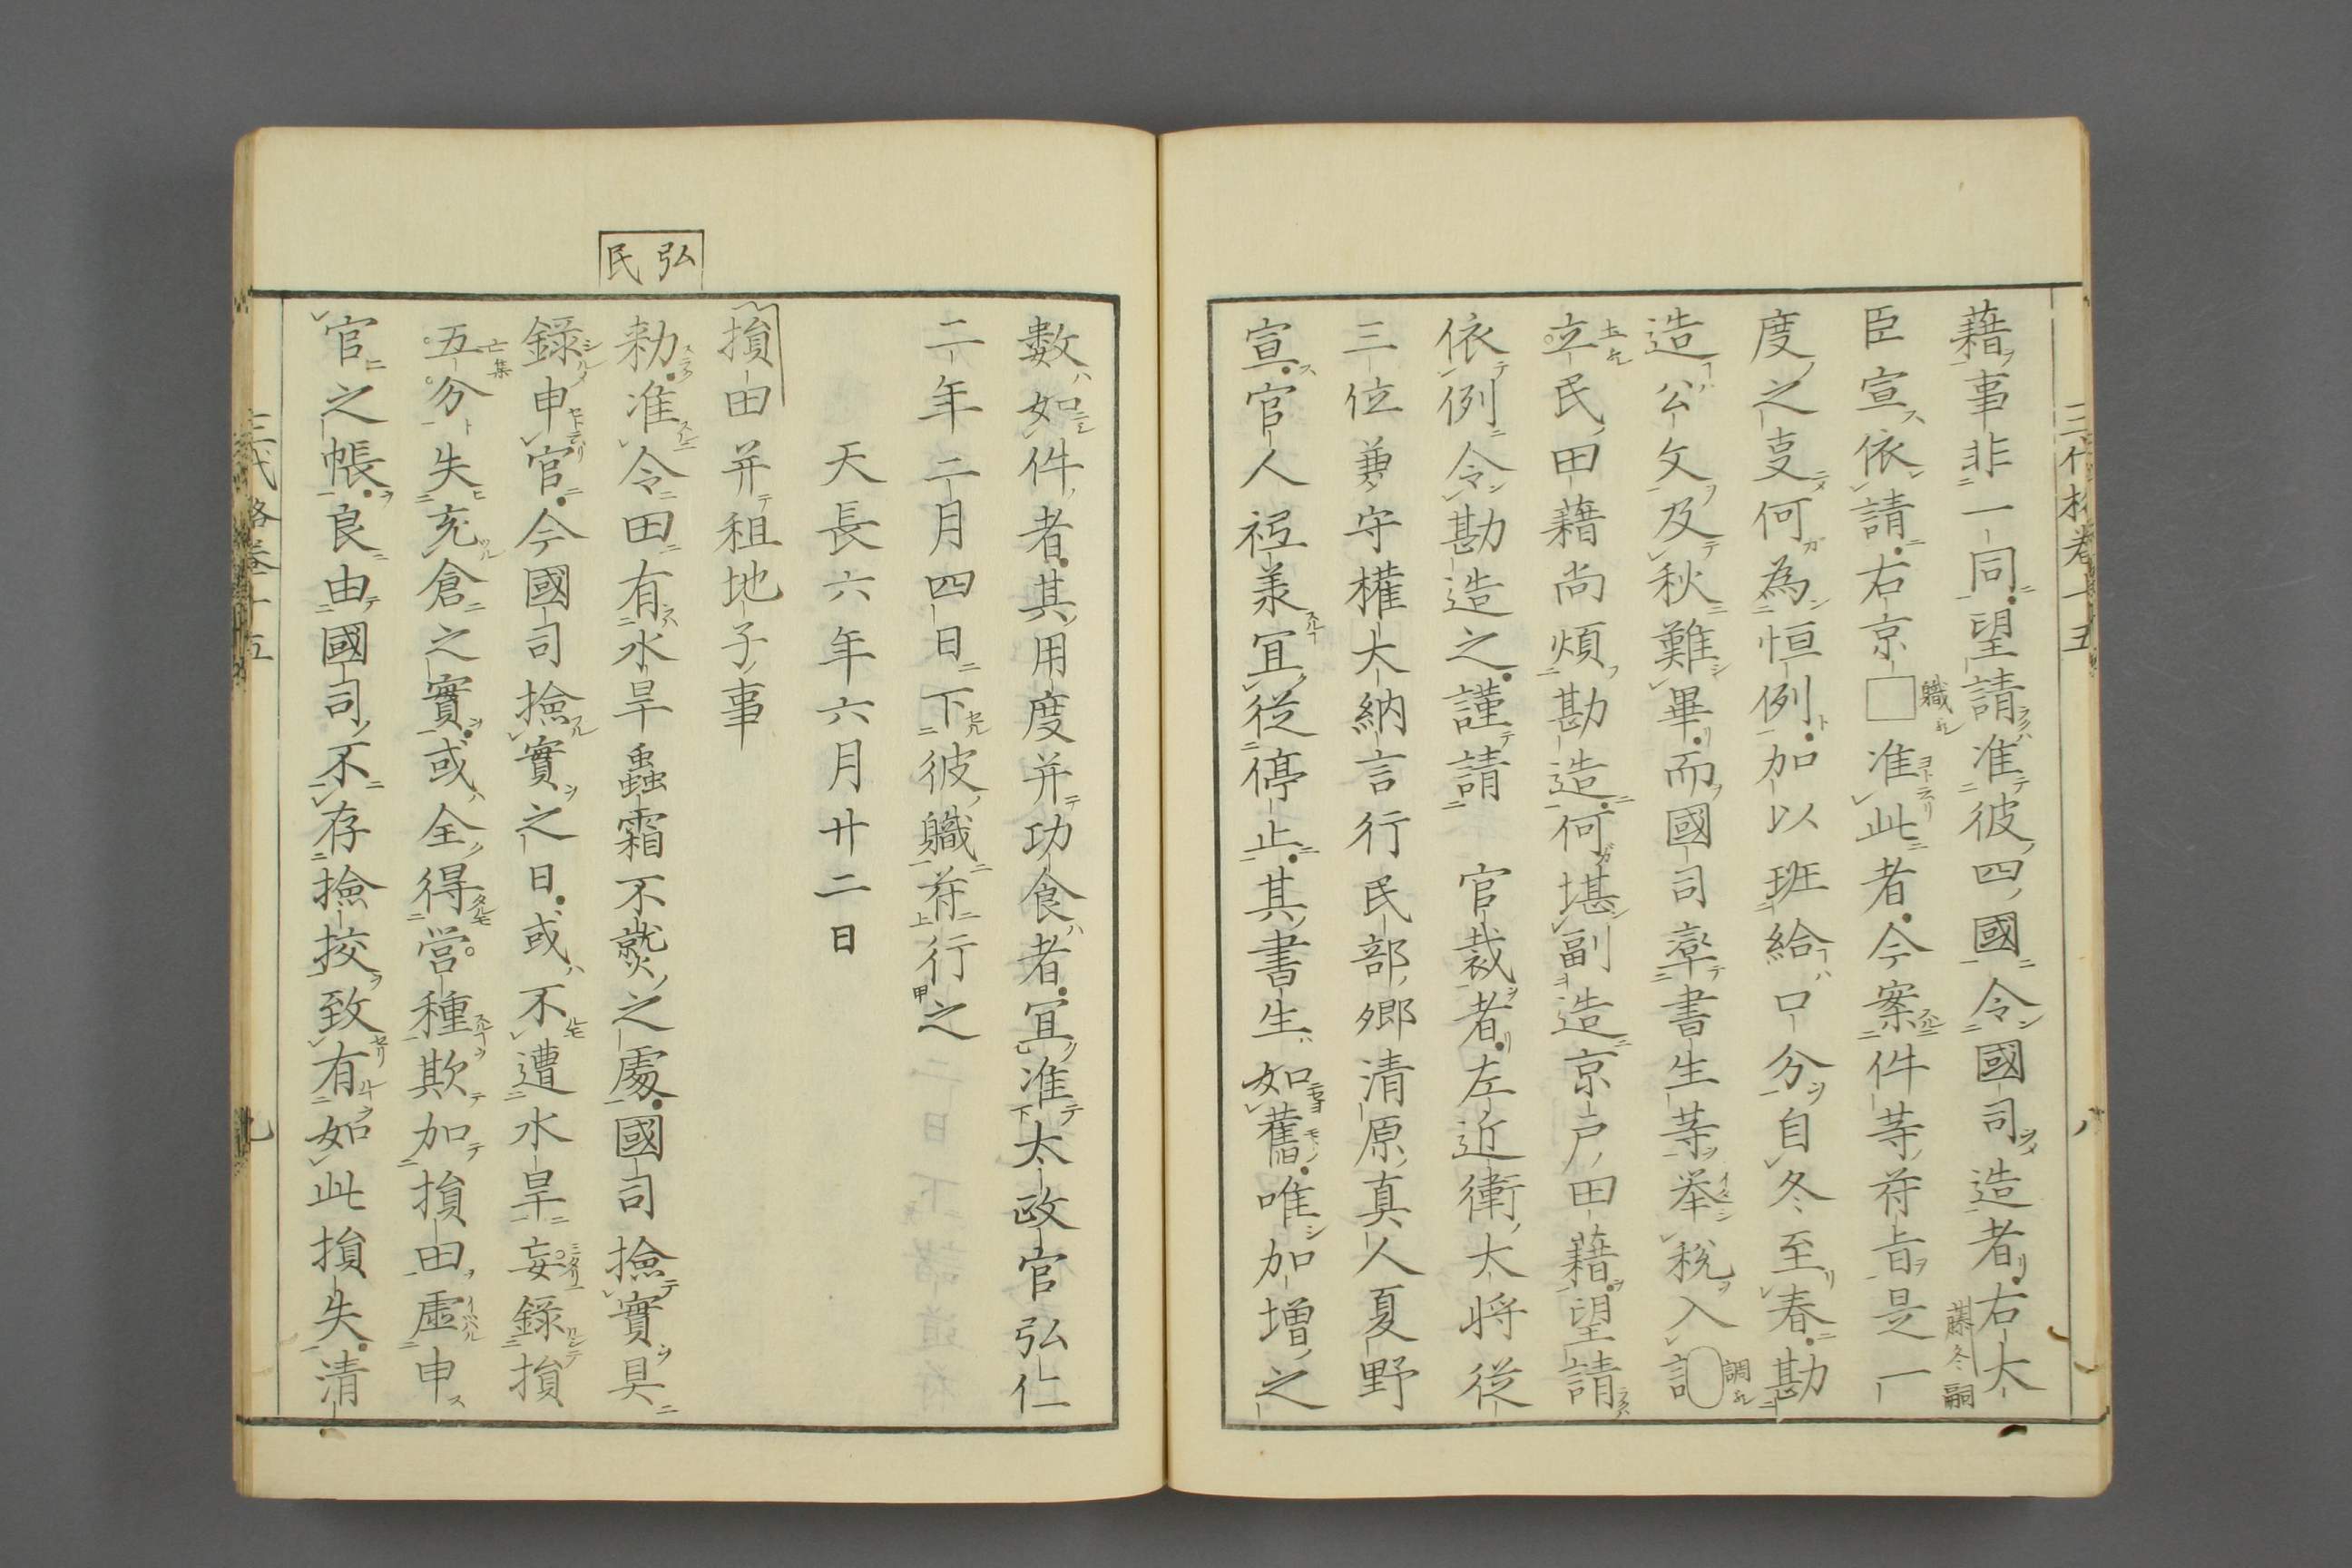 三代格卷十五 八
藉事非一同望請准彼四國令國司造者右大
藤冬嗣
臣宣依請右京□准此者今案件等符旨是一
職カ
度之㕝何為恒例加以班給口分自冬至春勘
造公文及秋難畢而國司率書生等挙税入訁
調カ
立民田藉尚煩勘造何堪副造京戸田藉望請
土カ
依例令勘造之謹請　官裁者左近衛大将従
三位兼守權大納言行民部卿清原真人夏野
宣官人祗羕宜従停止其書生如舊唯加増之
數如件者其用度并功食者宜准太政官弘仁
二年二月四日下彼職苻行之
天長六年六月廿二日
弘民
損田并租地子事
勑准令田有水旱蟲霜不熟之處國司撿實具
錄申官今國司撿實之日或不遭水旱妄録損
五分失充倉之實或全得営種欺加損田虛申
亡集
官之帳良由國司不存撿挍致有如此損失清
三代格卷十五 九